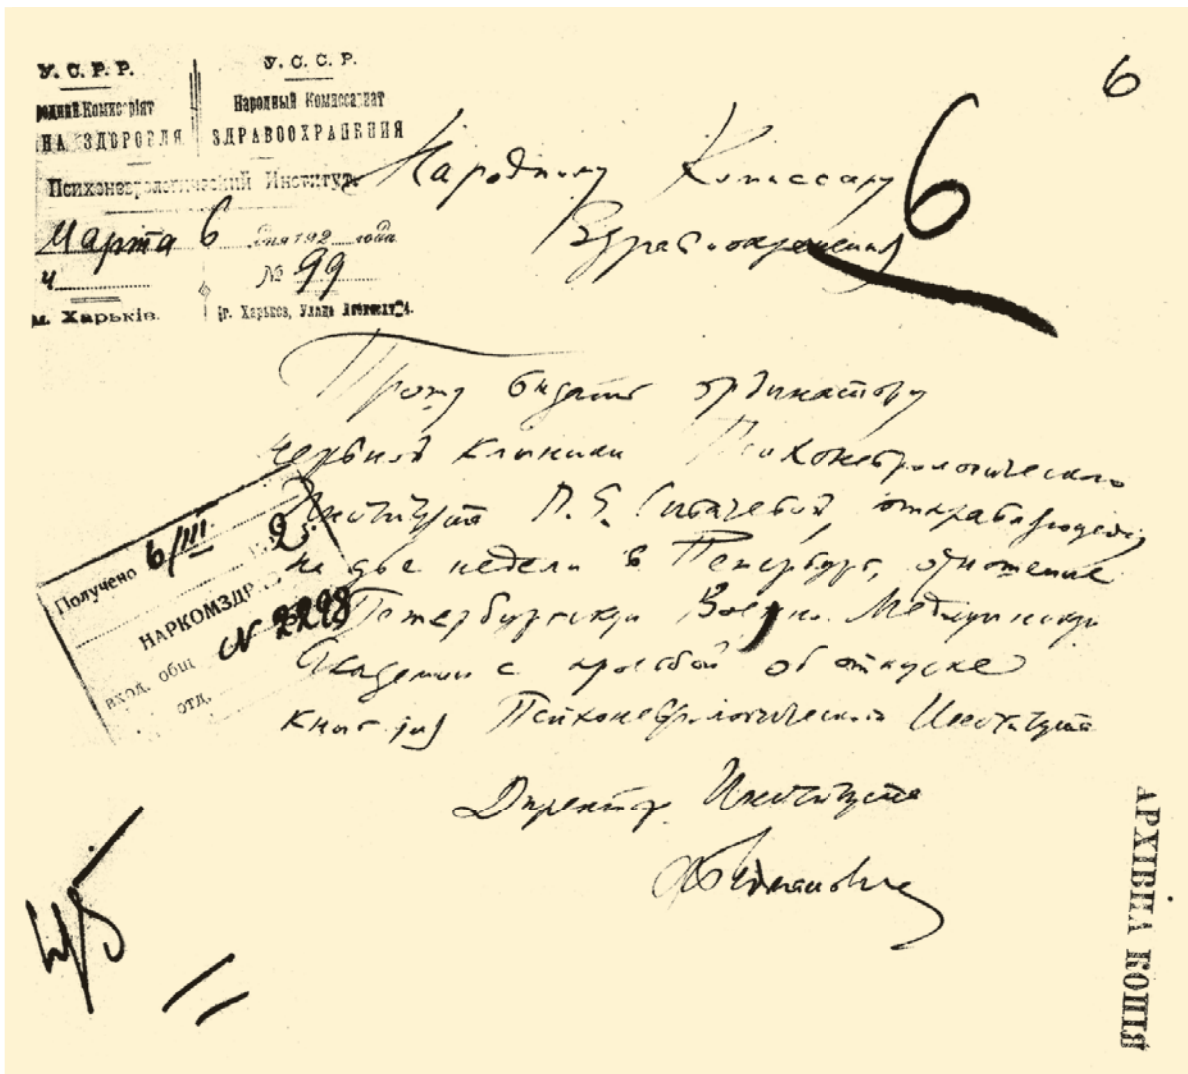 6
У. С. Р. Р.
родний Комисаріят
НА ЗДОРОВЛЯ
У. С. С. Р.
Народный Комиссариат
ЗДРАВООХРАНЕНИЯ
Психоневрологический Институт.
Марта 6 дня 192 года
Ч № 99
м. Харьків. (г. Харьков, Улица
Народному Комиссару
Здравоохранения
6
Прошу выдать ординатору
нервной клиники Психоневрологического
Института П. Е. отправляющейся
на две недели в Петербург, отношение
Петербургскую Военно Медицинскую
Академию с просьбой об отпуске
книг для Психоневрологического Института
Директор Института
Получено 6/III 192
НАРКОМЗДР
вход. общ № 2298
отд.
АРХІВНА КОПІЯ